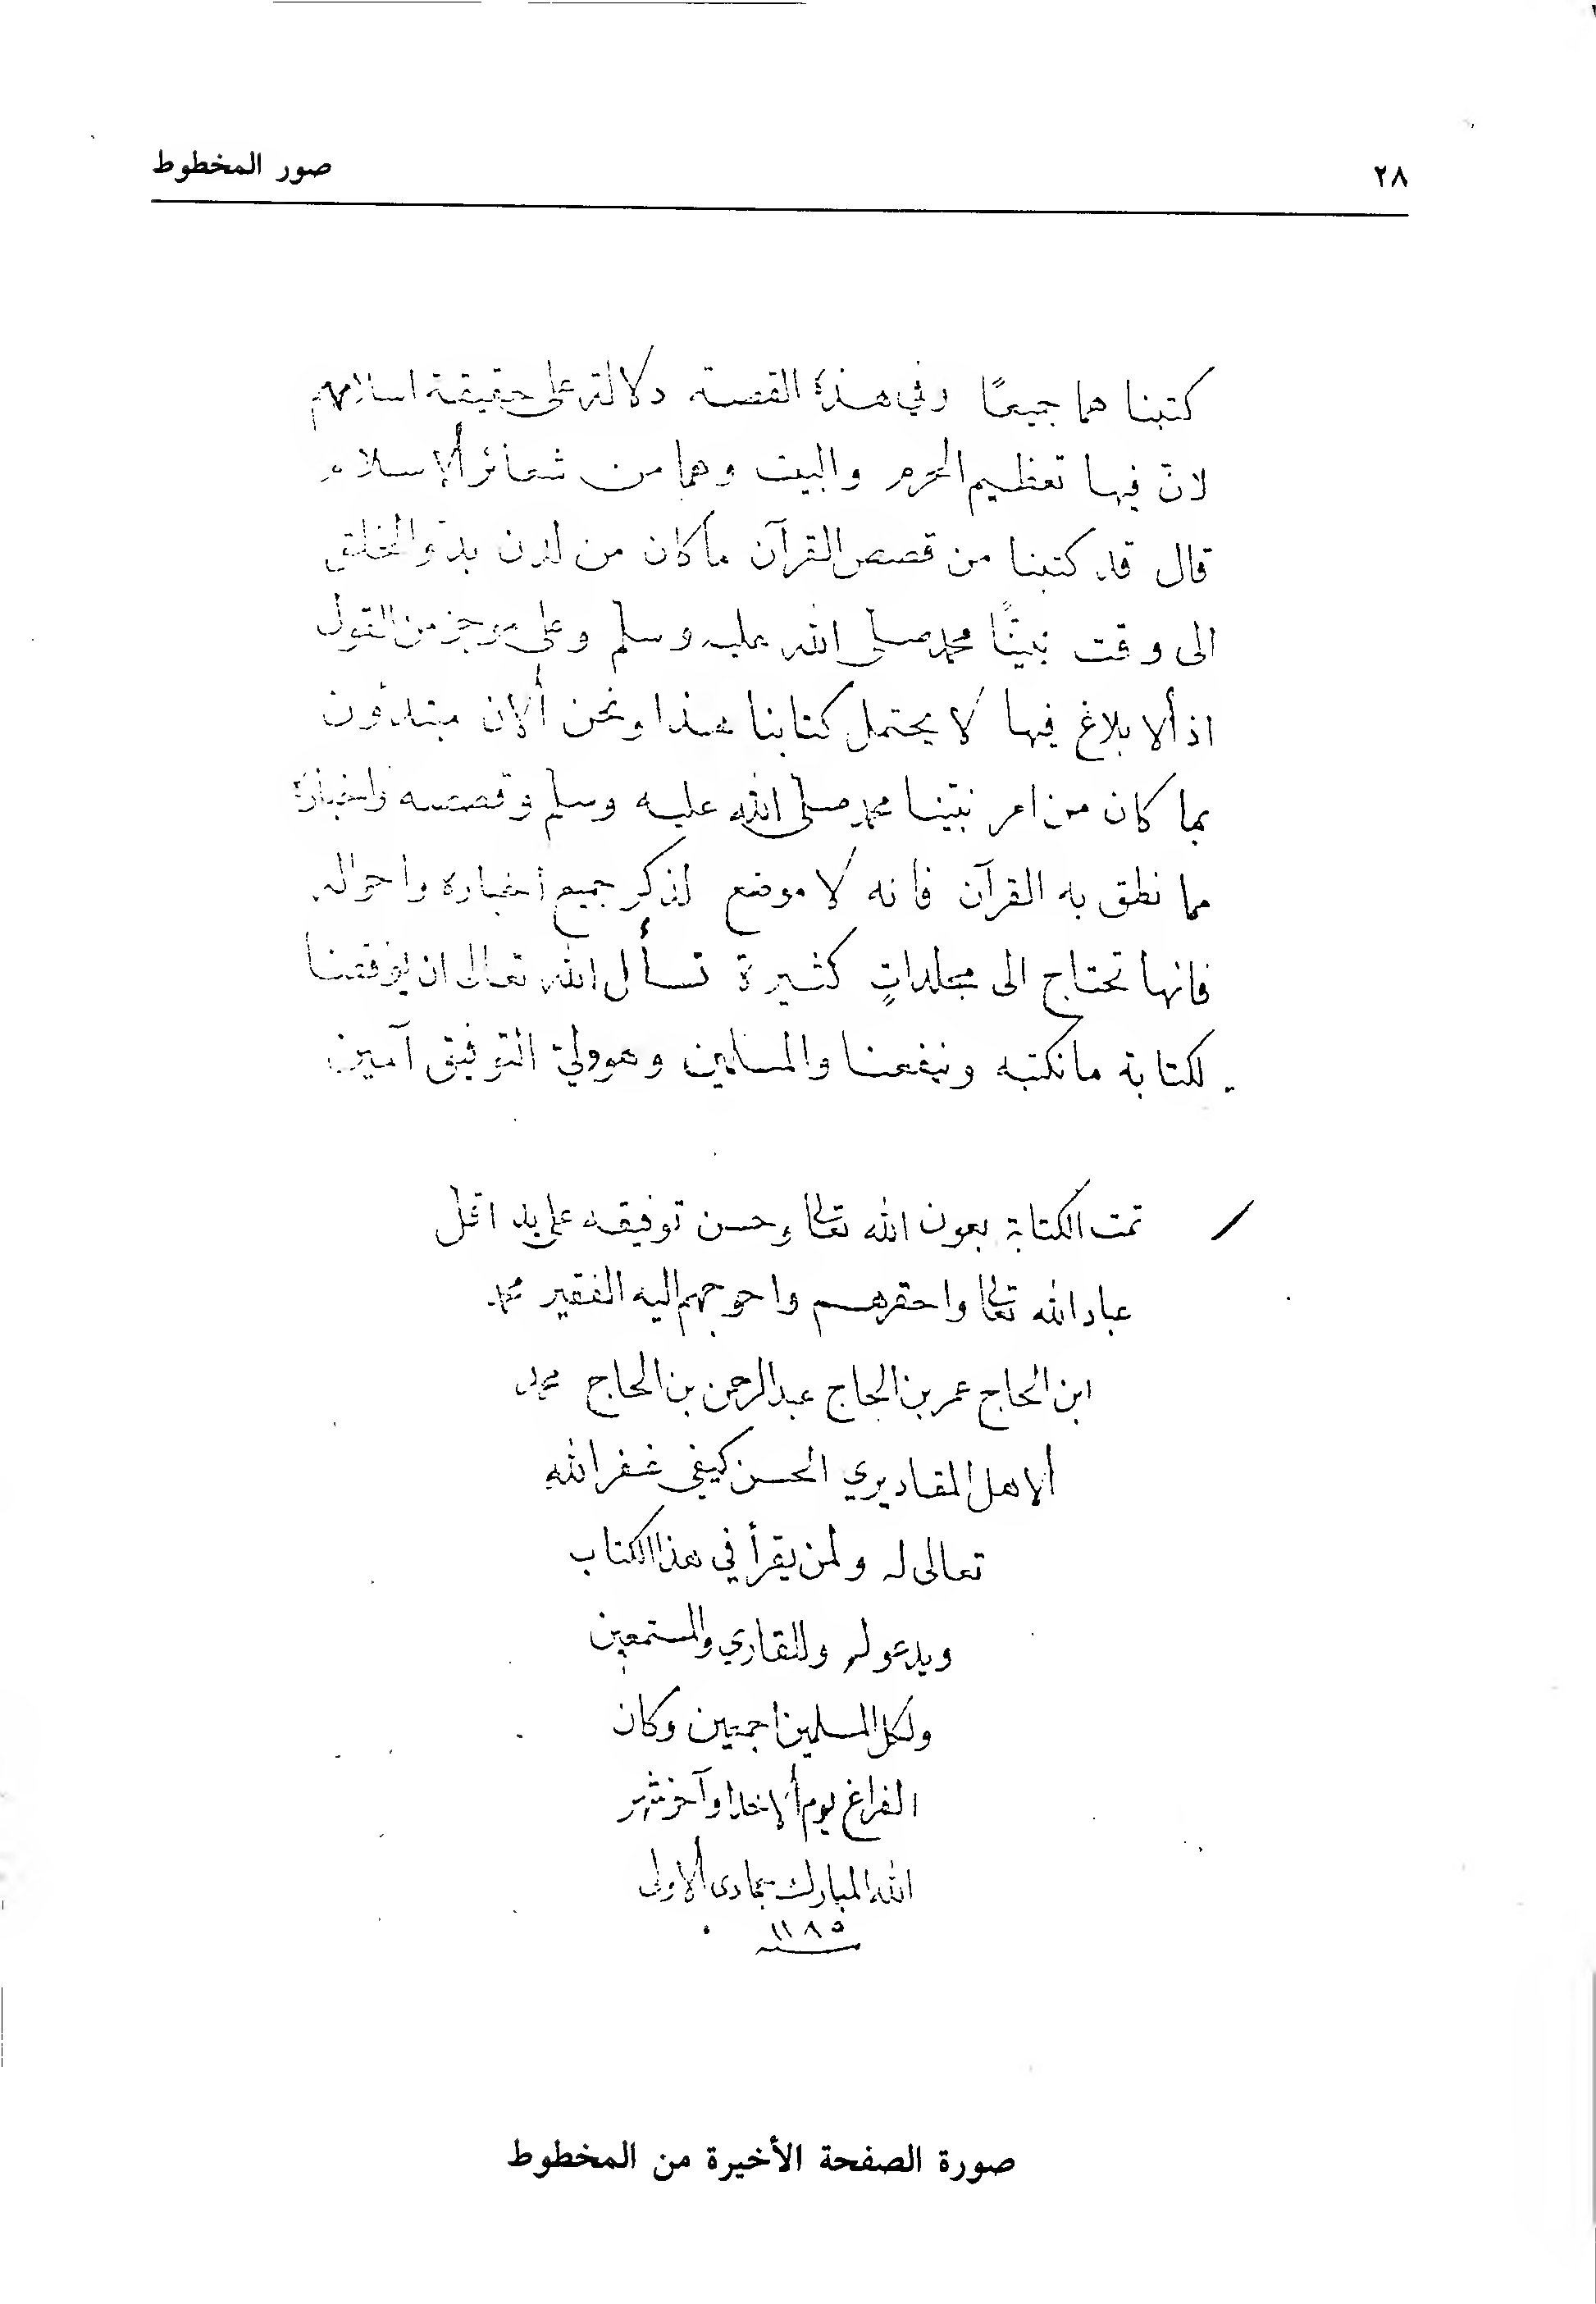 ٢٨
صور المخطوط
كتبنا هما جميعًا وفي هذه القصة دلالة على حقيقة اسلامهم
لانّ فيها تعظيم الحرم والبيت وهما من شعائر ألاسلام
قال قد كتبنا من قصص القرآن ما كان من لدن بدو الخلق
الى وقت نبينًا محمد صلى الله عليه وسلم وعلى موجز من القول
اذ ألابلاغ فيها لا يحتمل كتابنا هذا ونحن ألان مبتدئون
بما كان من امر نبيّنا محمد صلى الله عليه وسلم وقصصه واخباره
مما نطق به القرآن فانه لا موضع لذكر جميع أخباره واحواله
فانها تحتاج الى مجلداتٍ كثيرة نسأل الله تعالى ان يوفقنا
لكتابة ما نكتبه وينفعنا والمسلمين وهو وليّ التوفيق آمين
تمت الكتابة بعون الله تعالى وحسن توفيقه على يد اقل
عباد الله تعالى واحقرهم واحوجهم اليه الفقير محمد
ابن الحاج عمر بن الحاج عبد الرحمن بن الحاج محمد
ألاهل المقاديري الحسن كيفي غفر الله
تعالى له ولمن يقرأ في هذا الكتاب
ويدعو له وللقاري والمستمعين
ولكل المسلمين اجمعين وكان
الفراغ يوم ألاحد اواخر شهر
الله المبارك جمادى ألاولى
١١٨٥
سنه
صورة الصفحة الأخيرة من المخطوط